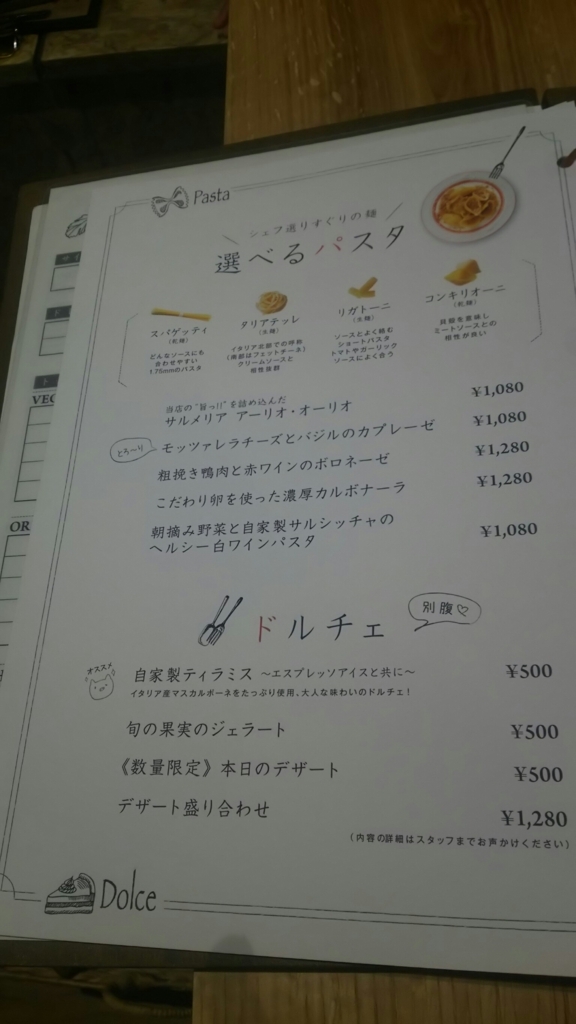 Pasta
シェフ選りすぐりの麺
選べるパスタ
スパゲッティ
(乾麺)
どんなソースにも
合わせやすい
1.75mmのパスタ
タリアテッレ
(生麺)
イタリア北部での呼称
(南部はフェットチーネ)
クリームソースと
相性抜群
リガトーニ
(生麺)
ソースとよく絡む
ショートパスタ
トマトやガーリック
ソースによく合う
コンキリオーニ
(乾麺)
貝殻を意味し
ミートソースとの
相性が良い
当店の"旨っ!!"を詰め込んだ
サルメリア アーリオ・オーリオ ¥1,080
とろ〜り
モッツァレラチーズとバジルのカプレーゼ ¥1,080
粗挽き鴨肉と赤ワインのボロネーゼ ¥1,280
こだわり卵を使った濃厚カルボナーラ ¥1,280
朝摘み野菜と自家製サルシッチャの
ヘルシー白ワインパスタ ¥1,080
ドルチェ
別腹♡
オススメ
自家製ティラミス 〜エスプレッソアイスと共に〜 ¥500
イタリア産マスカルポーネをたっぷり使用、大人な味わいのドルチェ!
旬の果実のジェラート ¥500
《数量限定》本日のデザート ¥500
デザート盛り合わせ ¥1,280
(内容の詳細はスタッフまでお声かけください)
Dolce
VEG
OR